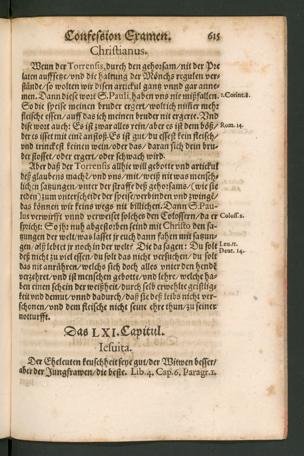 Confession Examen. 615
Christianus.
Wenn der Torrensis, durch den gehorsam, nit der Pre
laten auffsetze, vnd die haltung der Mönchs regulen ver-
stände, so wolten wir disen articul gantz vnnd gar anne-
men. Dann diese wort S. Pauli, haben vns nie mißfallen.
So die speise meinen bruder ergert, wolt ich nimer mehr
fleische essen, auff das ich meinen bruder nit ergerte. Vnd
dise wort auch: Es ist zwar alles rein, aber es ist dem böß,
der es isset mit eim anstoß. Es ist gut, du essest kein fleisch,
vnd trinckest keinen wein, oder das, daran sich dein bru-
der stosset, oder ergert, oder schwach wird.
1. Corint. 8.
Rom. 14.
Aber daß der Torrensis allhie will gebotte vnd articul
deß glaubens macht, vnd vns, mit, weiß nit was mensch-
lichen satzungen, vnter der straffe deß gehorsams, (wie sie
reden) zum vnterscheide der speise, verbinden vnd zwinge,
das können wir keins wegs nit billichen. Dann S. Pau-
lus verwirfft vnnd verweiset solches den Colossern, da er
spricht: So ihr nuh abgestorben seind mit Christo den sa-
tzungen der welt, was lasset jr euch dann fahen mit satzun-
gen, als lebet jr noch in der welt: Die da sagen: Du solt
deß nicht zu viel essen, du solt das nicht versuchen, du solt
das nit anrühren, welches sich doch alles vnter den hend
verzehret, vnd ist menschen gebotte, vnd lehre, welche ha-
ben einen schein der weißheit, durch selb erwehlte geistlig-
keit vnd demut, vnnd dadurch, daß sie deß leibs nicht ver-
schonen, vnd dem fleische nicht seine ehre thun, zu seiner
notturfft.
Coloss. 2.
Leu. 11.
Deut. 14.
Das LXI. Capitul.
Iesuita.
Der Eheleuten keuschheit seye gut, der Witwen besser,
aber der Jungfrawen, die beste. Lib. 4. Cap. 6. Paragr. 1.